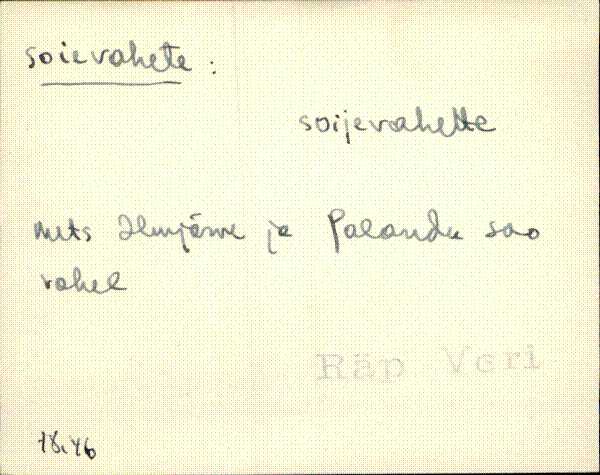 soievahete :
soijevahette
mets Ilmjärve ja Palandu soo
vahel
Räp Veri